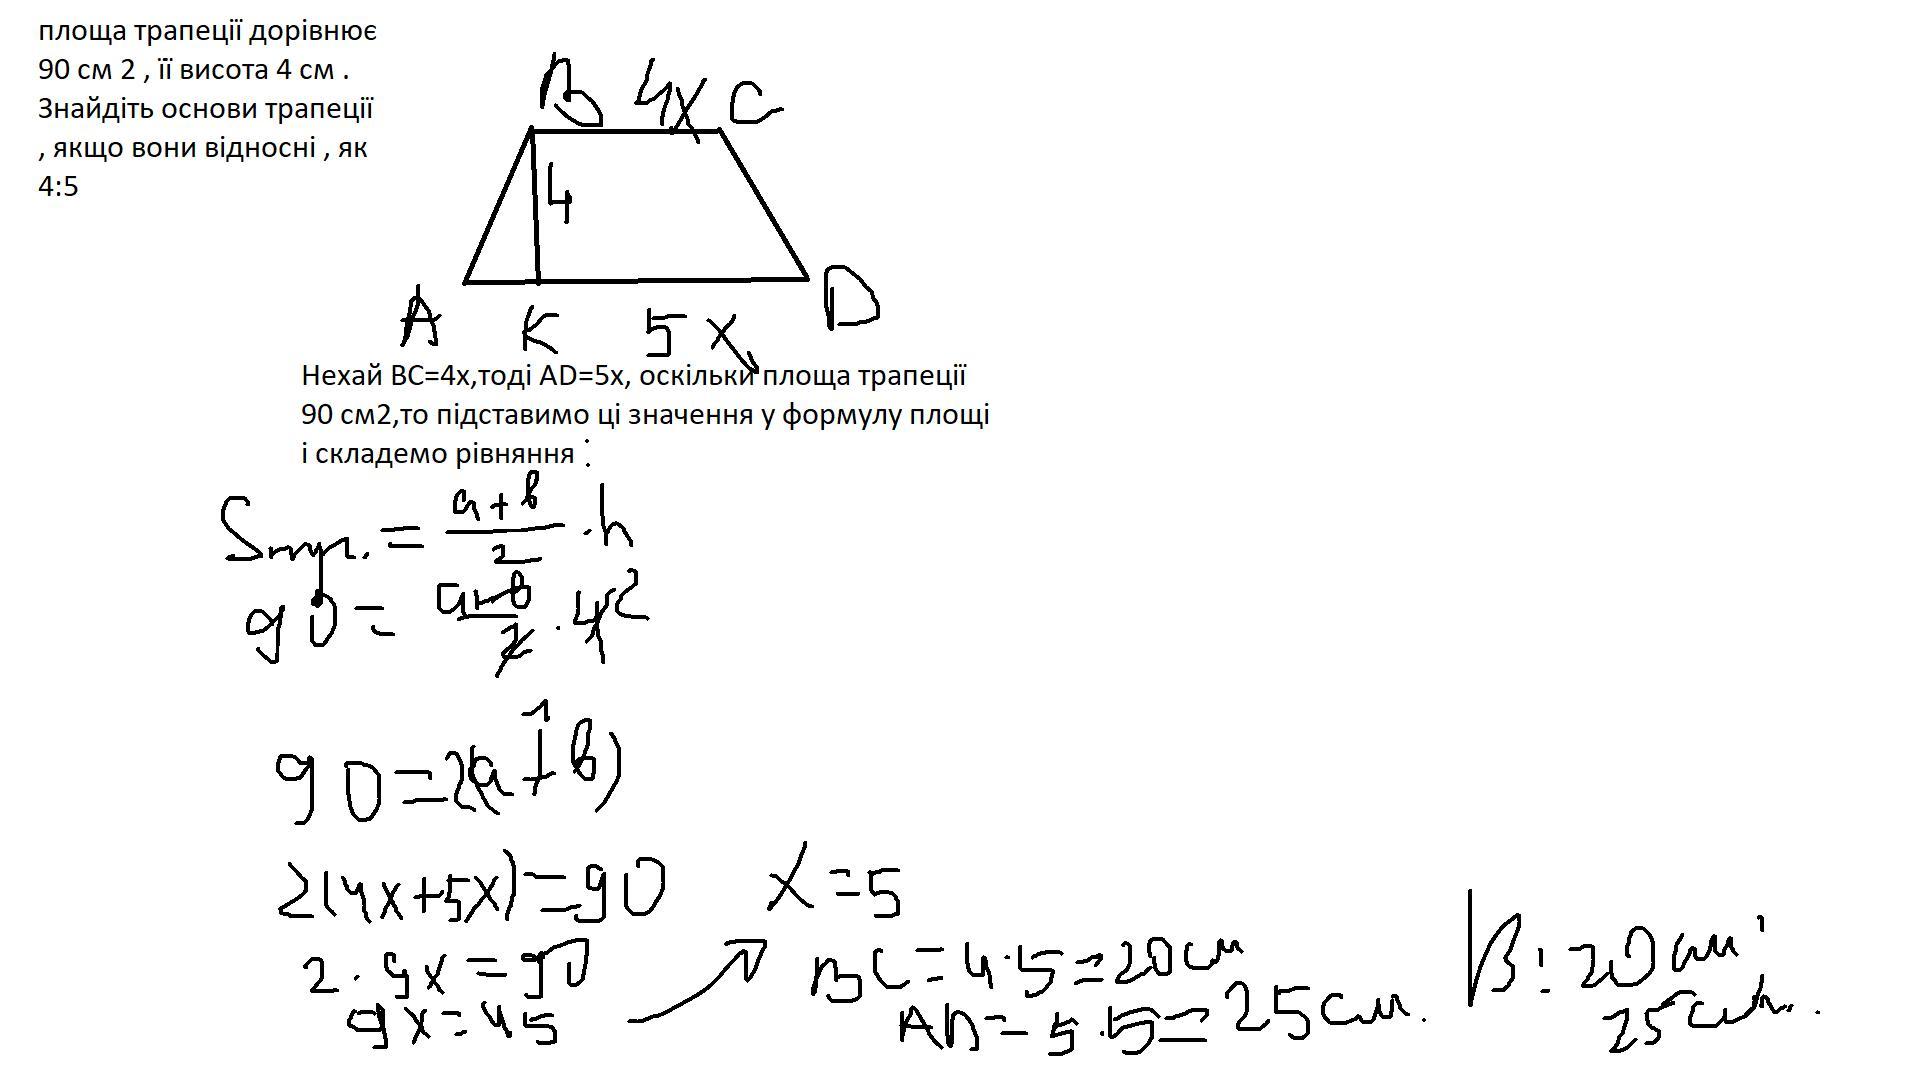 площа трапеції дорівнює
90 см 2 , її висота 4 см .
Знайдіть основи трапеції
, якщо вони відносні , як
4:5
B 4x C
4
A K 5x D
Нехай BC=4x,тоді AD=5x, оскільки площа трапеції
90 см2,то підставимо ці значення у формулу площі
і складемо рівняння :
Sтр. = (a+b)/2 · h
90 = (a+b)/2 · 4 2
1
90=2(a+b)
2(4x+5x)=90
2·9x=90
9x=45
x=5
BC=4·5=20см
AD=5·5=25см.
В: 20см;
25см.